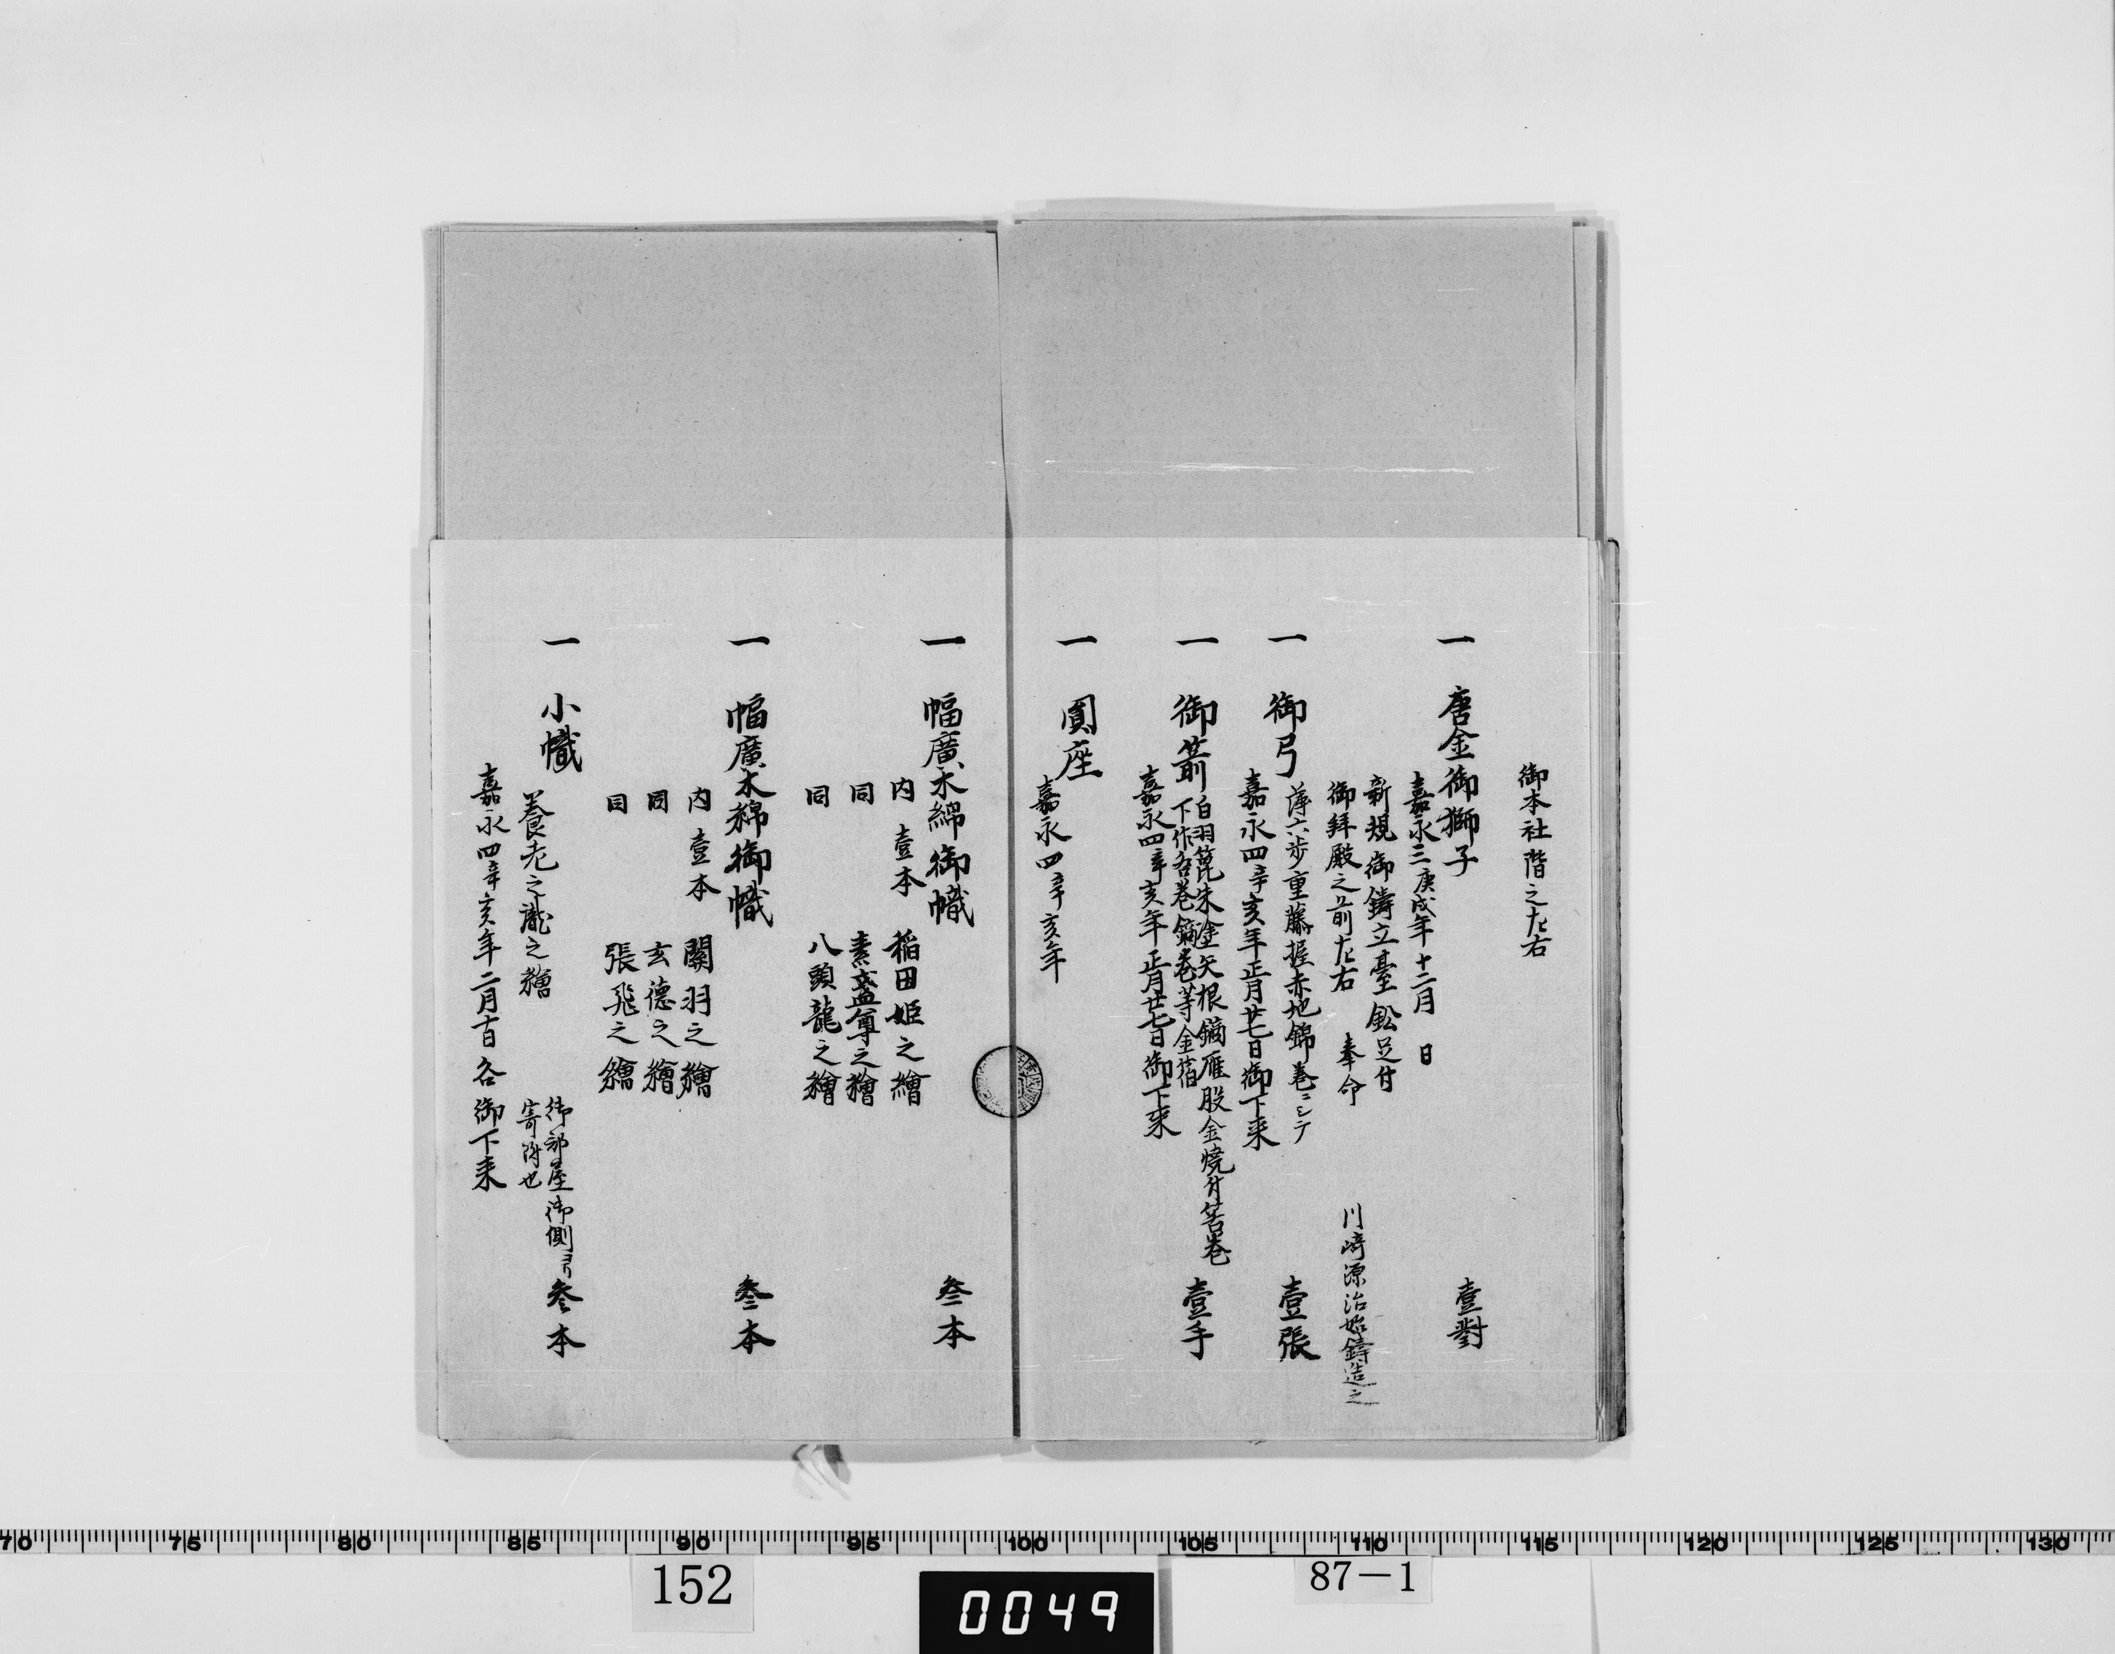 御本社階之左右
一 唐金御獅子 壹對
嘉永三庚戌年十二月 日
新規御鑄立臺鈆足付
御拜殿之前左右 奉命 川崎源治始鑄造之
一 御弓 壹張
薄六歩重藤握赤地錦巻ニシテ
嘉永四辛亥年正月廿七日御下来
一 御箭 壹手
白羽箆朱塗矢根鏑雁股金焼付筈巻
下作沓巻鏑巻等金箔
嘉永四辛亥年正月廿七日御下来
一 圓座
嘉永四辛亥年
一 幅廣木綿御幟 叁本
内 壹本 稲田姫之繪
同 素盞尊之繪
同 八頭龍之繪
一 幅廣木綿御幟 叁本
内 壹本 關羽之繪
同 玄德之繪
同 張飛之繪
一 小幟 叁本
養老之瀧之繪
御部屋御側ヨリ
寄附也
嘉永四辛亥年二月 各御下来
70 75 80 85 90 95 100 105 110 115 120 125 130
152
0049
87-1